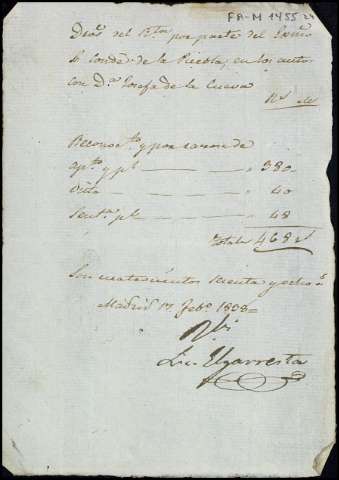 FA-M 1455 24
Dros. del Rtor. por parte del Exmo.
Sr. Conde de la Puebla, en los autos
con Da. Josefa de la Cueva
Rs. ms.
Reconocto. y por razon de
apto. y pl. 380
Vista 40
Senta. pl. 48
Total 468
Son cuatrocientos sesenta y ocho rs.
Madrid 17 Febo. 1808
Rbi.
Lic. Elgarresta